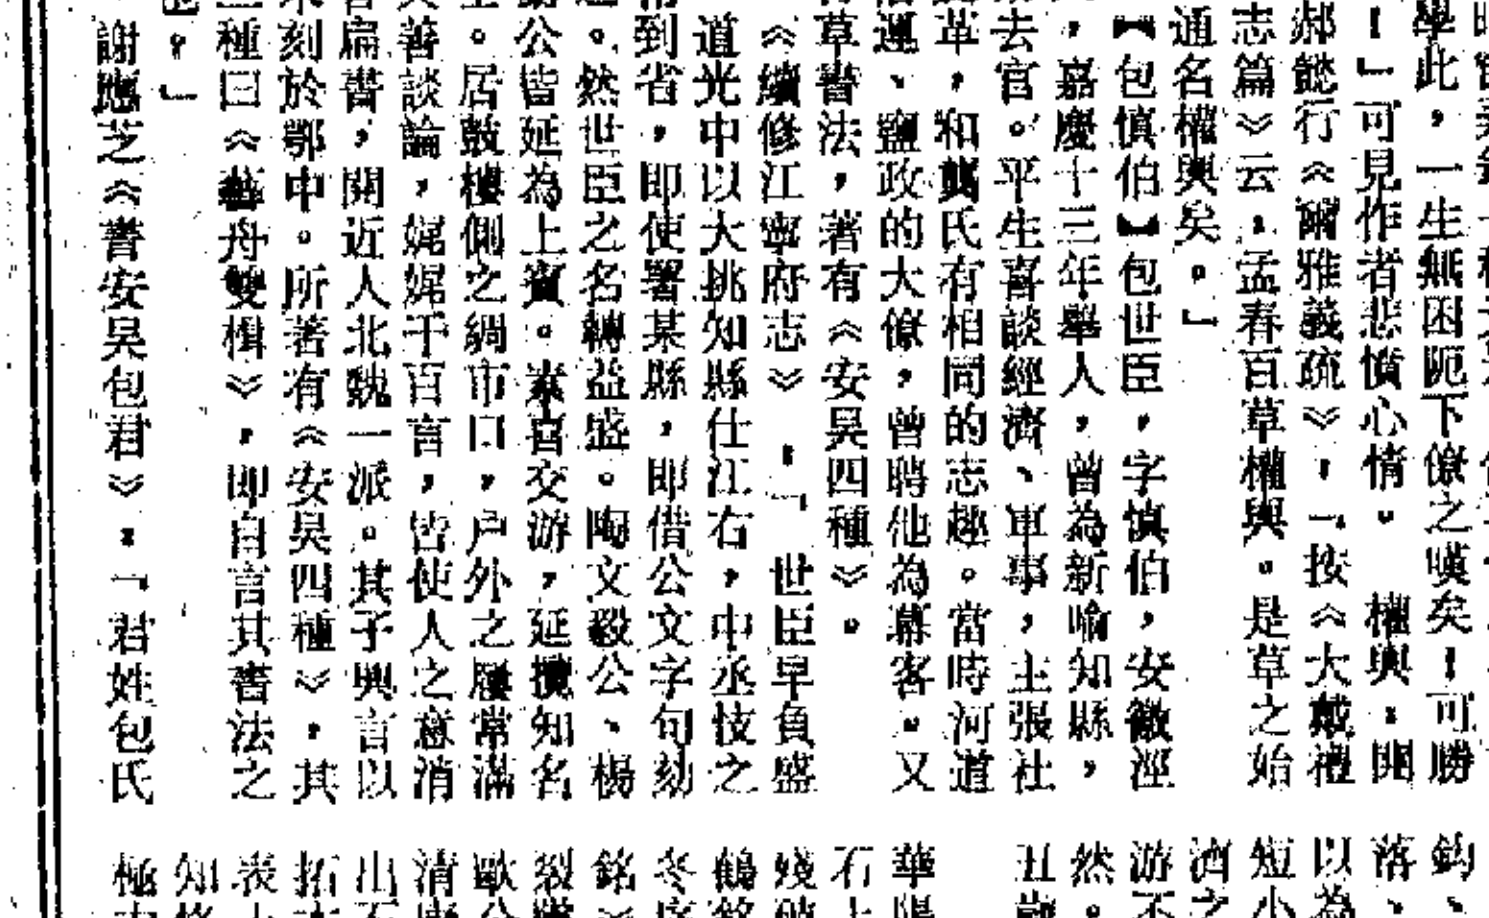 學此，一生無困阨下僚之嘆矣！可勝
！」可見作者悲憤心情。　權輿：開
郝懿行《爾雅義疏》：「按《大戴禮
志篇》云：孟春百草權輿。是草之始
通名權輿矣。」
【包慎伯】包世臣，字慎伯，安徽涇
，嘉慶十三年舉人，曾為新喻知縣，
去官。平生喜談經濟、軍事，主張社
革，和龔氏有相同的志趣。當時河道
運、鹽政的大僚，曾聘他為幕客。又
草書法，著有《安吳四種》。
《續修江寧府志》：「世臣早負盛
道光中以大挑知縣仕江右，中丞忮之
到省，即使署某縣，即借公文字句劾
。然世臣之名轉益盛。陶文毅公、楊
公皆延為上賓。素喜交游，延攬知名
。居鼓樓側之綢市口，戶外之屨常滿
善談論，娓娓千百言，皆使人之意消
扁書，開近人北魏一派。其子興言以
刻於鄂中。所著有《安吳四種》，其
種曰《藝舟雙楫》，即自言其書法之
。」
謝應芝《書安吳包君》：「君姓包氏
鈎、
落、
以為
短小
酒之
游不
然。
丑歲
華陽
石上
殘
鶴銘
冬
銘
裂
歐公
清
出
拓
表
知
極